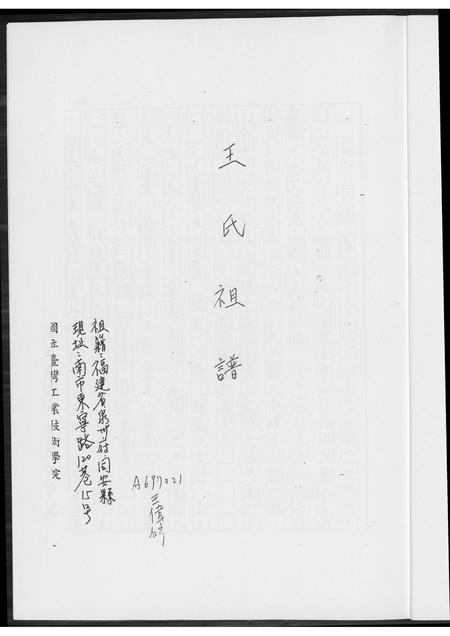 王氏祖譜
A697021
王偉
祖籍：福建省泉州府同安縣
現址：南市東寧路120巷15号
國立臺灣工業技術學院